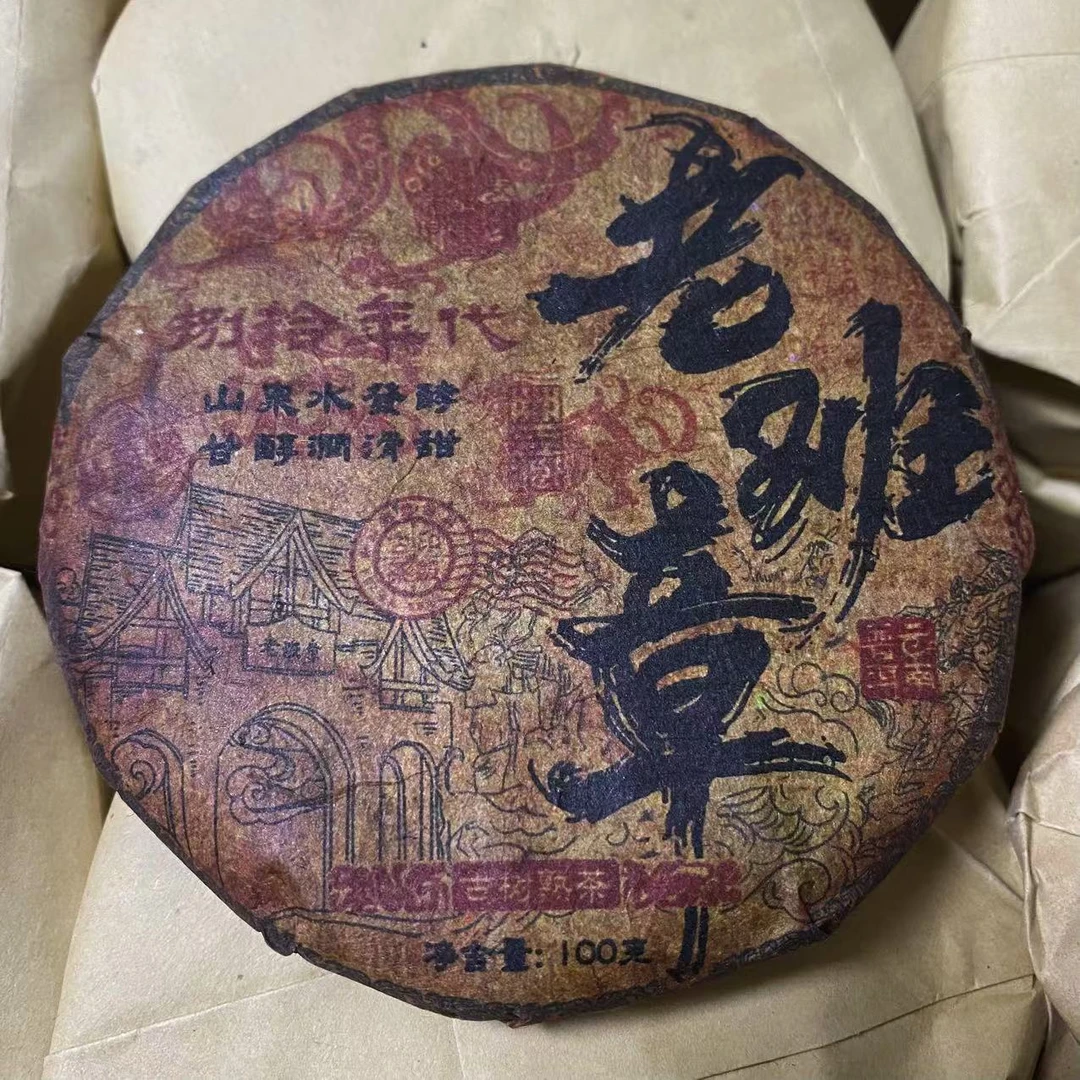 老班章
捌拾年代
山泉水發酵
甘醇潤滑甜
老班章
古树熟茶
净含量:100克